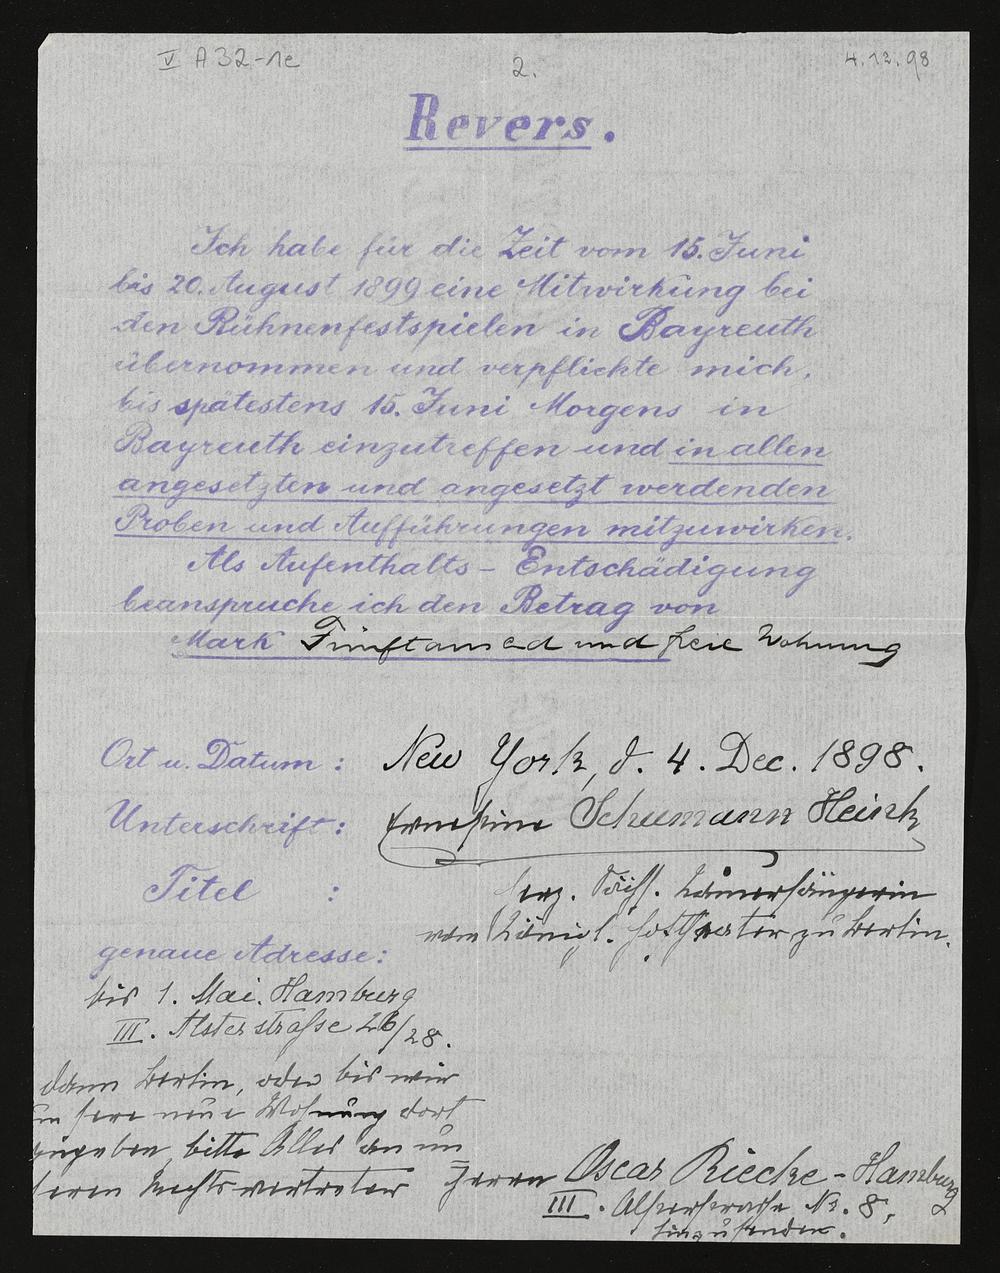 V A 32-1e
2.
4.12.98
Revers.
Ich habe für die Zeit vom 15. Juni
bis 20. August 1899 eine Mitwirkung bei
den Bühnenfestspielen in Bayreuth
übernommen und verpflichte mich,
bis spätestens 15. Juni Morgens in
Bayreuth einzutreffen und in allen
angesetzten und angesetzt werdenden
Proben und Aufführungen mitzuwirken.
Als Aufenthalts-Entschädigung
beanspruche ich den Betrag von
Mark Fünftausend und freie Wohnung
Ort u. Datum: New York, d. 4. Dec. 1898.
Unterschrift: Ernestine Schumann Heink
Titel : Herz. Sächs. Kammersängerin
vom Königl. Hoftheater zu Berlin.
genaue Adresse:
bis 1. Mai. Hamburg
III. Alsterstrasse 26/28.
dann Berlin, oder bis wir
unsere neue Wohnung dort
angeben, bitte Alles an un
seren Rechtsvertreter Herrn Oscar Riecke-Hamburg
III. No. 8,
hinzusenden.